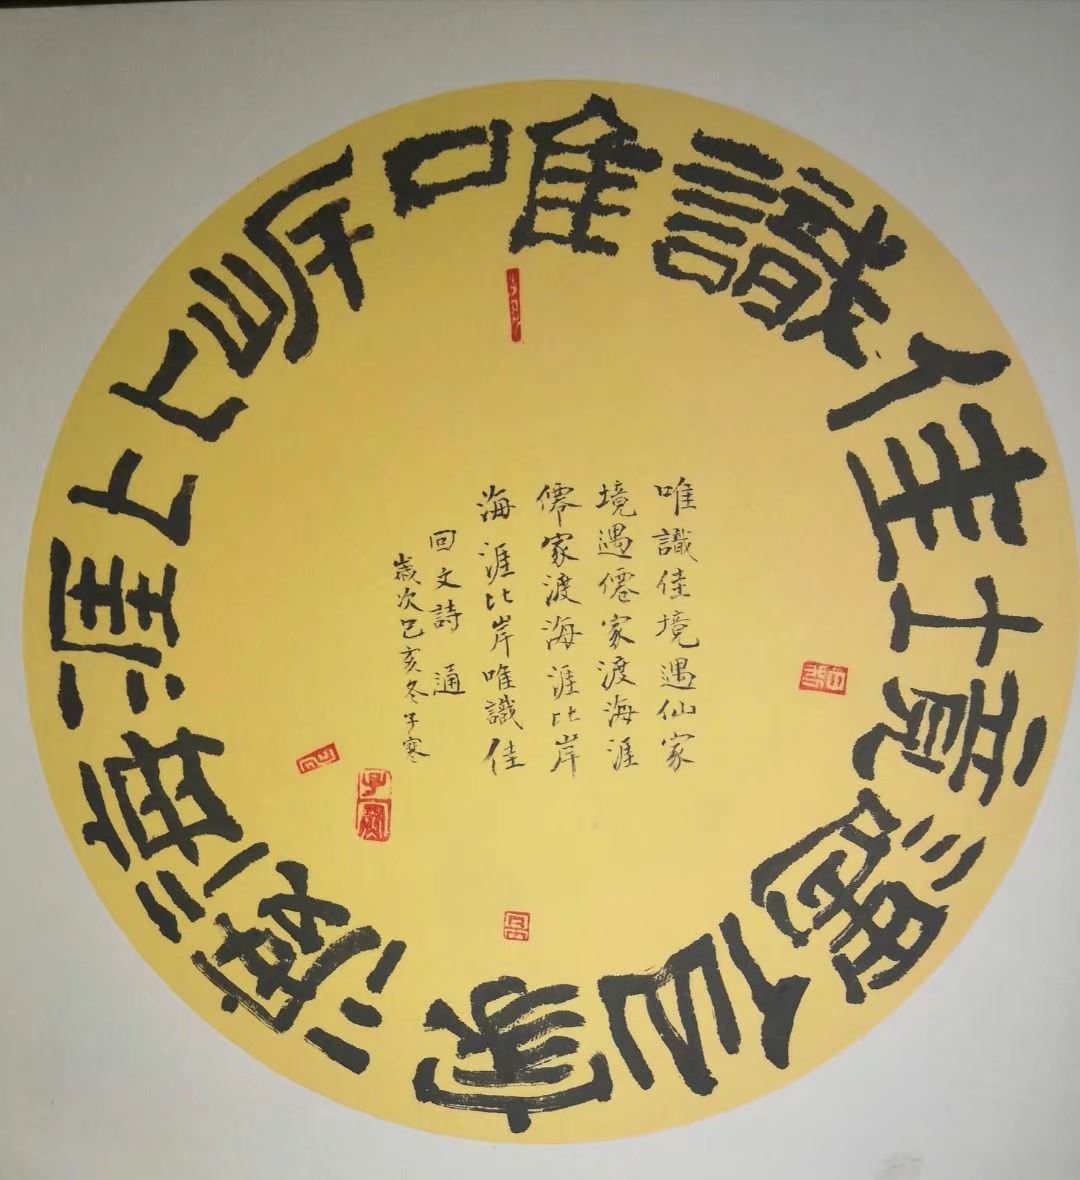 唯識佳境遇仙家渡海涯比岸
唯識佳境遇仙家
境遇僊家渡海涯
僊家渡海涯比岸
海涯比岸唯識佳
回文詩 通
歲次己亥冬子寒
子寒